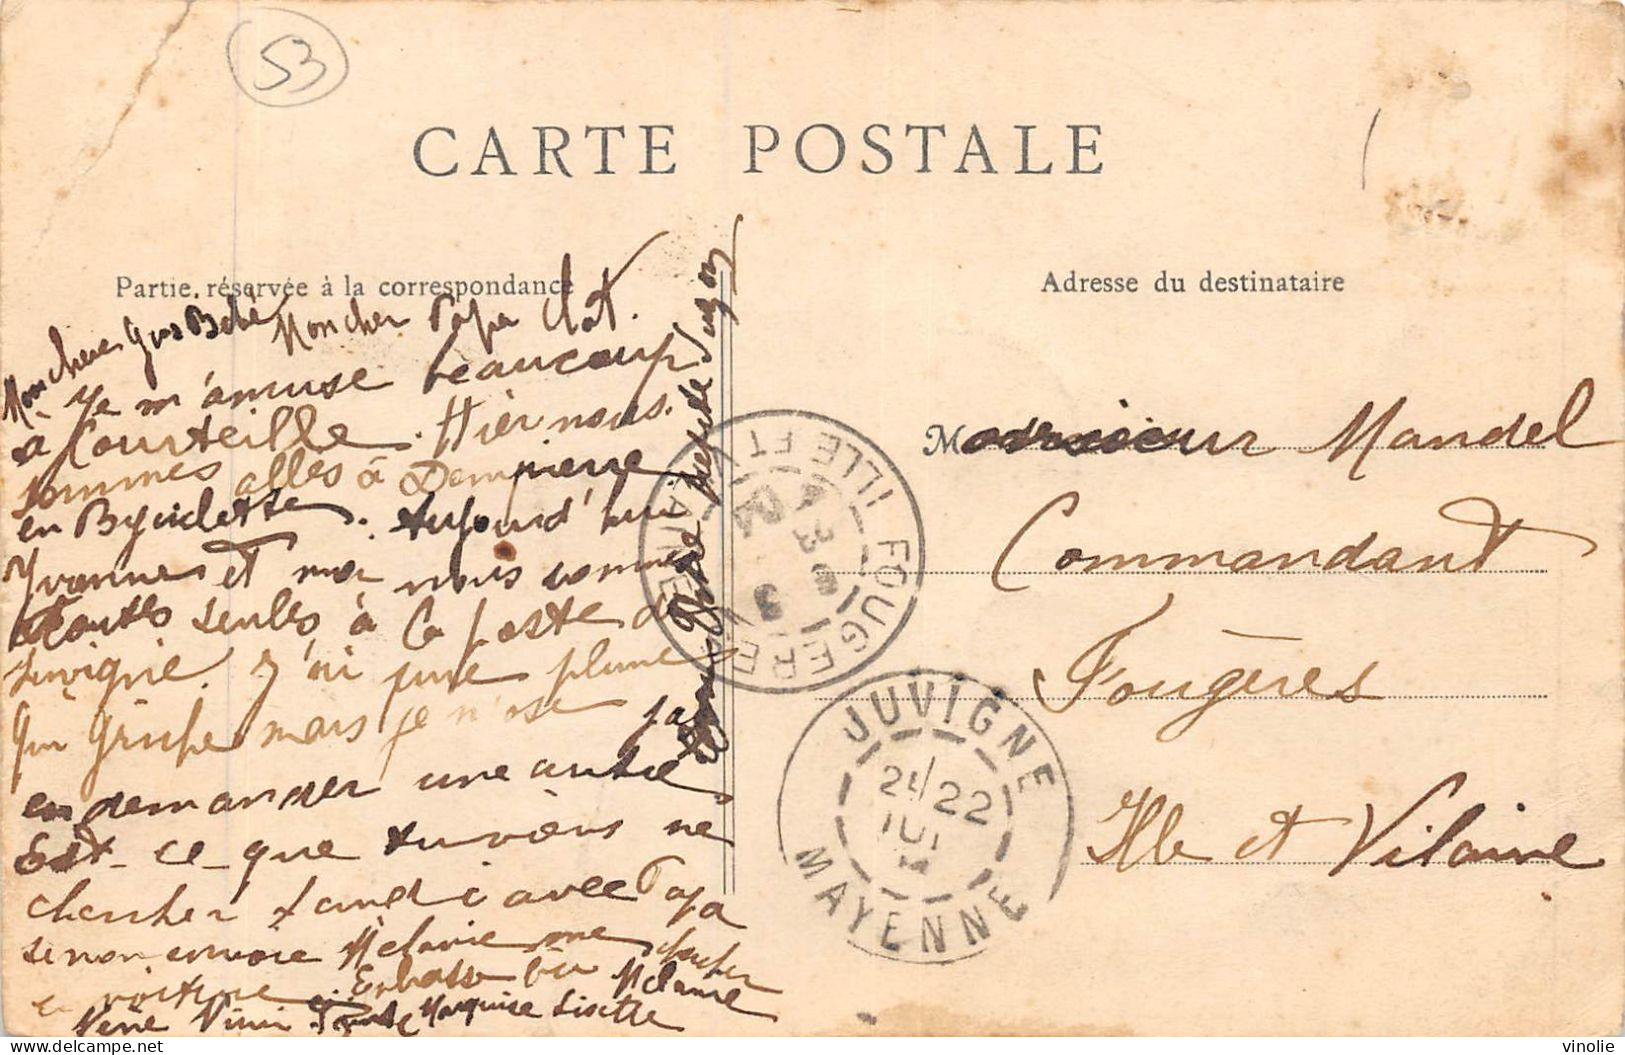 53
CARTE POSTALE
Partie réservée à la correspondance
Adresse du destinataire
Mon cher gros Bébé Mon cher Papa Chat.
Je m'amuse beaucoup
à Courteille. Hier nous
sommes allés à Dompierre
en Bycidette. Aujourd'hui
Yvonne et moi nous sommes
toutes seules à la poste de
Juvigné. J'ai une plume
qui grife mais je n'ose pas
en demander une autre
Est-ce que tu viens me
chercher Lundi avec Papa
sinon envoie Mélanie me chercher
en voiture Embrasse bien Mélanie
Néné Marquise Lisette
Suzon
Monsieur Mandel
Commandant
Fougères
Ille et Vilaine
FOUGERES ILLE ET
JUVIGNE
21/22
MAYENNE
vinolie